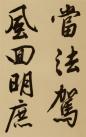 當法駕
風回明庶